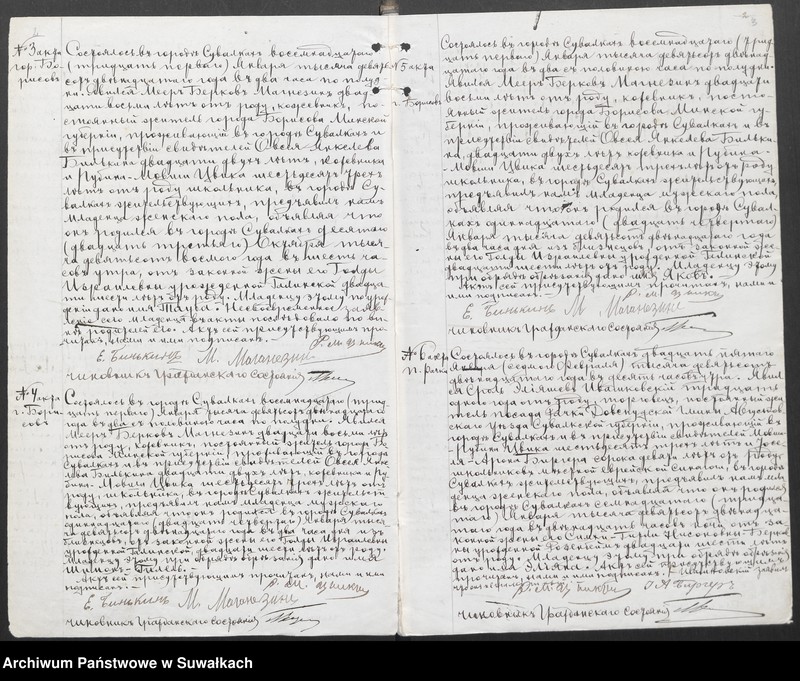 № 3 акта
гор. Бо-
рисовъ
Состоялось въ городѣ Сувалкахъ восемнадцатаго
(тридцать перваго) Января тысяча девять
сотъ двѣнадцатаго года въ два часа по полуд-
ни. Явился Мееръ Берковъ Магнезинъ двад-
цати восьми лѣтъ отъ роду, кожевникъ, по-
стоянный житель города Борисова Минской
губерніи, проживающій въ городѣ Сувалкахъ и
въ присутствіи свидѣтелей Овсея Янкелева
Бинькина двадцати двухъ лѣтъ, кожевника
и Рубина-Мовши Цвика шестьдесяти трехъ
лѣтъ отъ роду школьника, въ городѣ Су-
валкахъ жительствующихъ, предъявилъ намъ
младенца женскаго пола, объявляя что
онъ родился въ городѣ Сувалкахъ десятаго
(двадцать третьяго) Октября тыся-
ча девятьсотъ восьмого года въ шесть ча-
совъ утра, отъ законной жены его Голды
Израилевны урожденной Гилинской двадца-
ти шести лѣтъ отъ роду. Младенцу этому
дано имя
родителей его. Актъ сей присутствующимъ про-
читанъ, нами и ими подписанъ.
Е. Бинькинъ М. Магнезинъ Р. М. Цвикъ
Чиновникъ Гражданскаго Состоянія
№ 4 акта
г. Бори-
совъ
Состоялось въ городѣ Сувалкахъ восемнадцатаго (трид-
цать перваго) Января тысяча девятьсотъ двѣнадцатаго
года въ два съ половиною часа по полудни. Явился
Мееръ Берковъ Магнезинъ двадцати восьми лѣтъ
отъ роду, кожевникъ, постоянный житель города Бо-
рисова Минской губерніи, проживающій въ городѣ
Сувалкахъ и въ присутствіи свидѣтелей Овсея Янке-
лева Бинькина двадцати двухъ лѣтъ кожевника и Ру-
бина-Мовши Цвика шестьдесяти трехъ лѣтъ отъ
роду, школьника, въ городѣ Сувалкахъ жительст-
вующихъ, предъявилъ намъ младенца мужескаго
пола, объявляя что онъ родился въ городѣ Сувалкахъ
одиннадцатаго (двадцать четвертаго) Января тыся-
ча девятьсотъ двѣнадцатаго года въ два часа дня изъ
близнецовъ, отъ законной жены его Голды Израилевны
урожденной Гилинской, двадцати шести лѣтъ отъ роду.
Младенцу этому при обрядѣ обрѣзанія дано имя
Актъ сей присутствующимъ прочитанъ, нами и ими
подписанъ.
Е. Бинькинъ М. Магнезинъ Р. М. Цвикъ
Чиновникъ Гражданскаго Состоянія
3
№ 5 акта
г. Борисовъ
Состоялось въ городѣ Сувалкахъ восемнадцатаго (трид-
цать перваго) Января тысяча девятьсотъ двѣнад-
цатаго года въ два съ половиною часа по полудни.
Явился Мееръ Берковъ Магнезинъ двадцати
восьми лѣтъ отъ роду, кожевникъ, посто-
янный житель города Борисова Минской гу-
берніи, проживающій въ городѣ Сувалкахъ и въ
присутствіи свидѣтелей Овсея Янкелева Бинькина
двадцати двухъ лѣтъ кожевника и Рубина-
Мовши Цвика шестьдесяти трехъ лѣтъ отъ роду
школьника, въ городѣ Сувалкахъ жительствующихъ,
предъявилъ намъ младенца мужескаго пола,
объявляя что онъ родился въ городѣ Сувал-
кахъ одиннадцатаго (двадцать четвертаго)
Января тысяча девятьсотъ двѣнадцатаго года
въ два часа дня изъ близнецовъ, отъ законной же-
ны его Голды Израилевны урожденной Гилинской
двадцати шести лѣтъ отъ роду. Младенцу этому
при обрядѣ обрѣзанія дано имя Яковъ.
Актъ сей присутствующимъ прочитанъ, нами и
ими подписанъ.
Р. М. Цвикъ
Е. Бинькинъ М. Магнезинъ
Чиновникъ Гражданскаго Состоянія
№ 6 акта
п. Рачки
Состоялось въ городѣ Сувалкахъ двадцать пятаго
Января (седьмого Февраля) тысяча девятьсотъ
двѣнадцатаго года въ десять часовъ утра. Явил-
ся Сроль Эліяшевъ Иваньковскій тридцать
одного года отъ роду, торговецъ, постоянный жи-
тель посада Рачки Довспудской гмины Августов-
скаго уѣзда Сувалкской губерніи, проживающій въ
городѣ Сувалкахъ и въ присутствіи свидѣтелей Мовши
-Рубина Цвика шестьдесяти трехъ лѣтъ и
сорока девяти лѣтъ отъ роду,
школьниковъ мѣстной еврейской синагоги, въ городѣ
Сувалкахъ жительствующихъ, предъявилъ намъ мла-
денца женскаго пола, объявляя что онъ родился
въ городѣ Сувалкахъ семнадцатаго (тридца-
таго) Января тысяча девятьсотъ двѣнадца-
таго года въ двѣнадцать часовъ ночи отъ за-
конной жены его
урожденной двадцати шести лѣтъ
отъ роду. Младенцу этому
дано имя Актъ сей присутствующимъ
прочитанъ, нами и ими подписанъ.
Р. М. Цвикъ
Чиновникъ Гражданскаго Состоянія
Archiwum Państwowe w Suwałkach